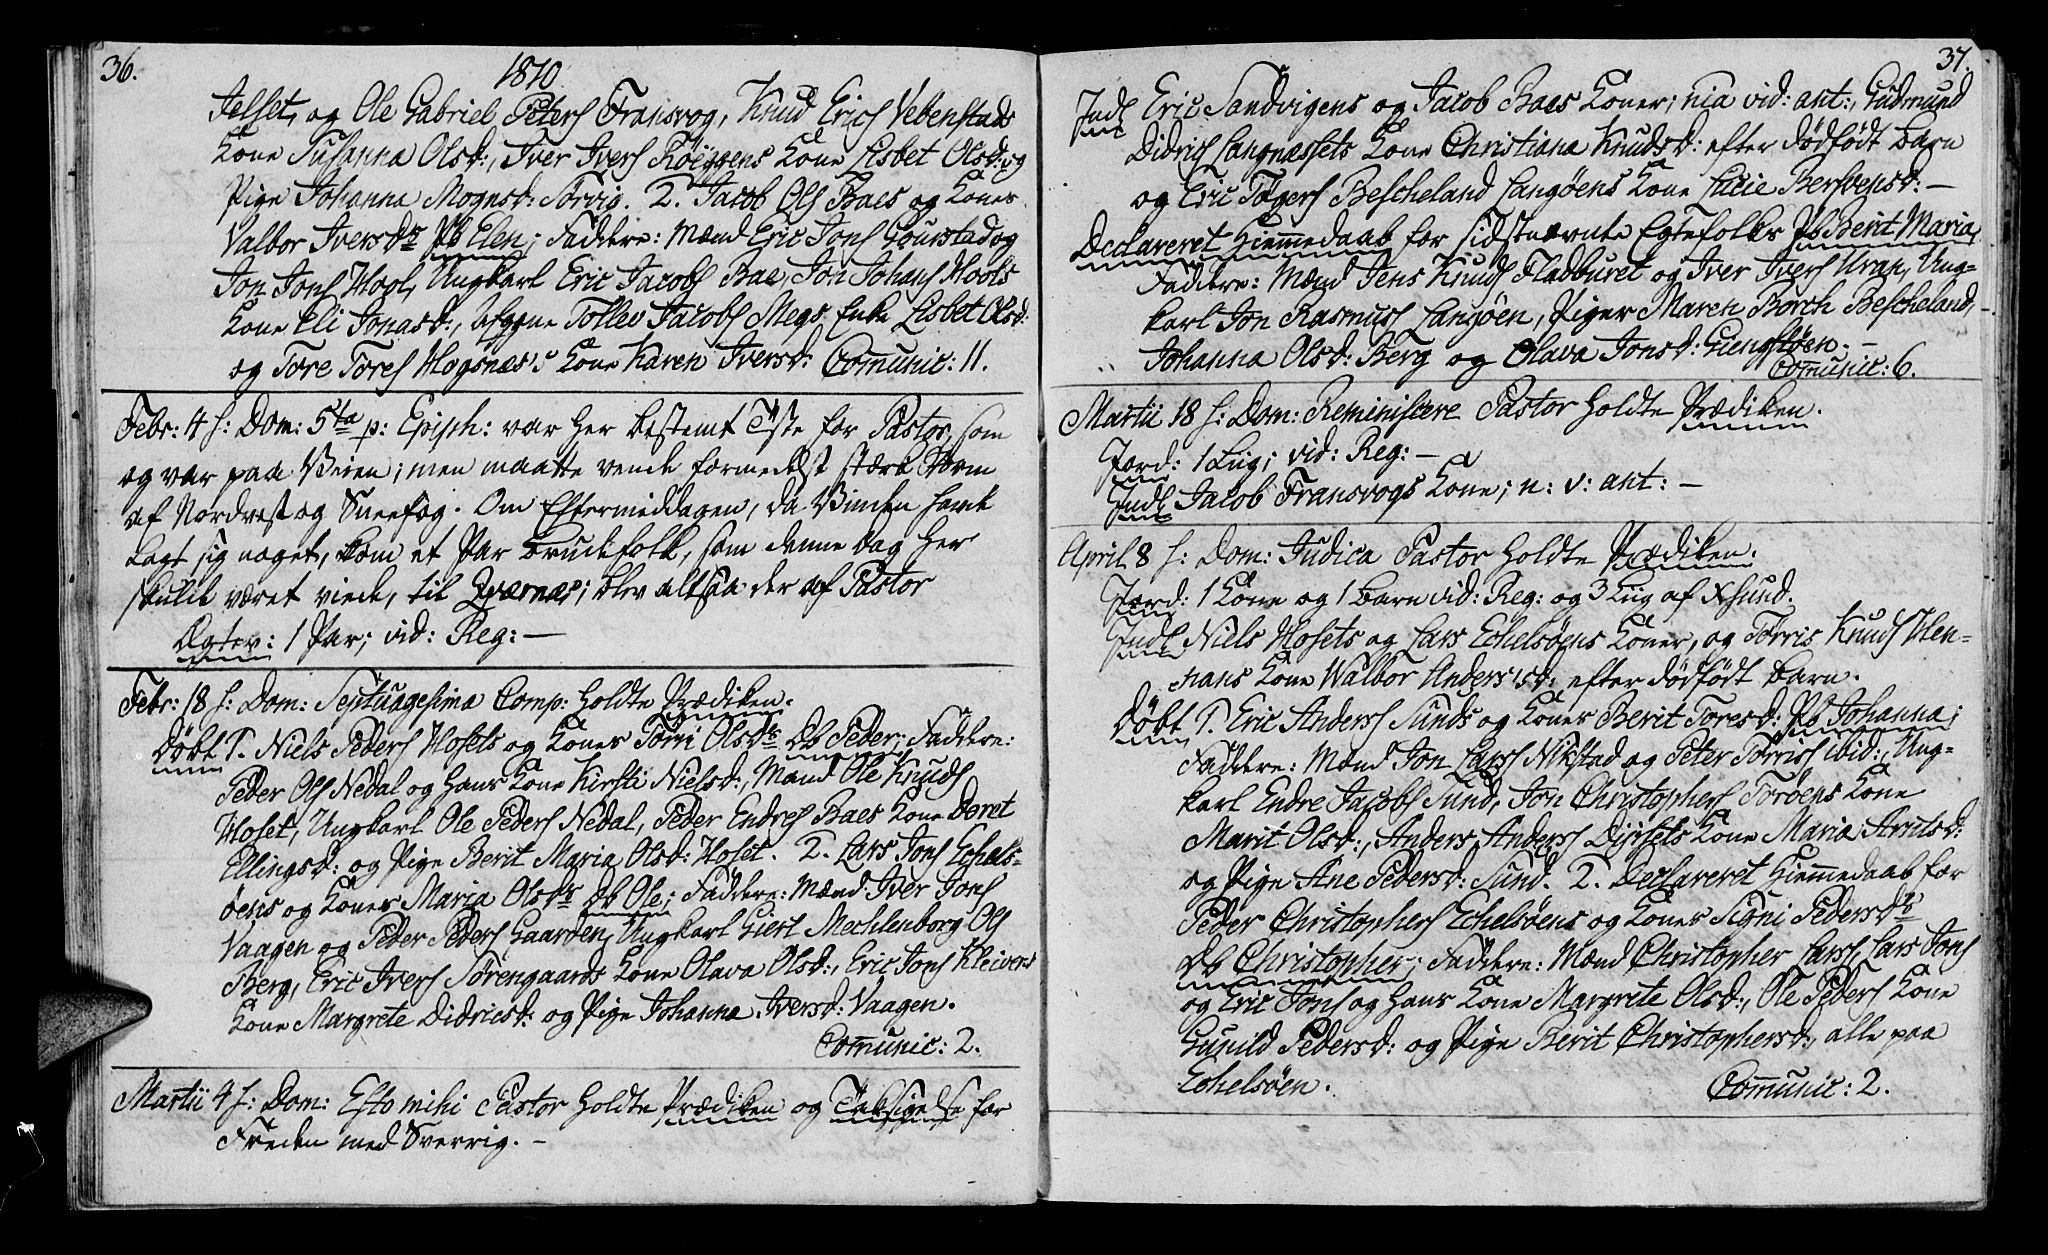 36.
1810
Jelset, og Ole Gabriel Peters Fransvog, Knud Erics Vebenstads
Kone Susanna Olsd:, Iver Ivers Röeggens Kone Lisbet Olsd: og
Pige Johanna Mognsd: Torvig. 2. Jacob Ols Baes og Kones
Valbor Iversdr PB Elen; Faddere: Mænd Eric Jons Gourstad og
Jon Jons Hool, Ungkarl Eric Jacobs Bae, Jon Johans Hools
Kone Eli Jonasd:, Afggne Tollev Jacobs Megs Enke Lisbet Olsd:
og Tore Tores Hogsnæs's Kone Karen Iversd: Comunic: 11.
Febr: 4 s: Dom: 5ta p: Epiph: var her bestemt Tjste for Pastor, som
og var paa Veien; men maatte vende formedelst stærk Storm
af Nordvest og Sneefog. Om Eftermiddagen, da Vinden havde
lagt sig noget, kom et Par Brudefolk, som denne dag her
skulde været viede, til Qværnæs; blev altsaa der af Pastor
Ægtev: 1 Par; vid: Reg: —
Febr: 18 s: Dom: Septuagesima Comp: holdte Prædiken.
Döbt 1. Niels Peders Hosets og Kones Torri Olsdr DB Peder; Faddere:
Peder Ols Nedal og hans Kone Kirsti Nielsd:, Mand Ole Knuds
Hoset, Ungkarl Ole Peders Nedal, Peder Endres Baes Kone Deret
Ellingsd: og Pige Berit Maria Olsd: Hoset. 2. Lars Jons Echels-
öens og Kones Maria Olsdr DB Ole; Faddere: Mænd Iver Jons
Vaagen og Peder Peders Gaarden, Ungkarl Giert Mechlenborg Ols
Berg, Eric Ivers Sörengaards Kone Olava Olsd:, Eric Jons Kleivens
Kone Margrete Didricsd: og Pige Johanna Iversd: Vaagen.
Comunic: 2.
Martii 4 s: Dom: Esto mihi Pastor holdte Prædiken og Taksigelse for
Freden med Sverrig. —
37.
Indl Eric Sandvigens og Jacob Baes Koner; nia vid: ant:, Gudmund
Didrics Langnæssets Kone Christiana Knudsd: efter dödfödt Barn
og Eric Tögers Bescheland Langöens Kone Lucie Bersvensd: —
Declareret Hiemmedaab for sidstnævnte Egtefolks PB Berit Maria,
Faddere: Mænd Jens Knuds Fladburet og Iver Ivers Uran, Ung-
karl Jon Rasmuss Langöen, Piger Maren Borch Bescheland,
Johanna Olsd: Berg og Olava Jonsd: Giengstöen. —
Comunic: 6.
Martii 18 s: Dom: Reminiscere Pastor holdte Prædiken.
Jord: 1 Liig; vid: Reg: —
Indl Jacob Fransvogs Kone; n: v: ant: —
April 8 s: Dom: Judica Pastor holdte Prædiken.
Jord: 1 Kone og 1 Barn vid: Reg: og 3 Liig af Xsund.
Indl Niels Hosets og Lars Echelsöens Koner, og Törris Knuds Hen-
dhans Kone Walbor Andersisd: efter dödfödt Barn.
Döbt 1. Eric Anderss Sunds og Kones Berit Toresd: PB Johanna;
Faddere: Mænd Jon Larss Nikstad og Peter Torriss ibid:, Ung-
karl Endre Jacobs Sund, Jon Christophers Toröens Kone
Marit Olsd:, Anders Anderss Disisets Kone Maria Arntsd:
og Pige Ane Pedersd: Sund. 2. Declareret Hiemmedaab for
Peder Christophers Echelsöens og Kones Signi Pedersdr
DB Christopher; Faddere: Mænd Christopher Larss, Lars Jons
og Eric Jons og hans Kone Margrete Olsd:, Ole Peders Kone
Gunild Pedersd: og Pige Berit Christophersd:, alle paa
Echelsöen.
Comunic: 2.